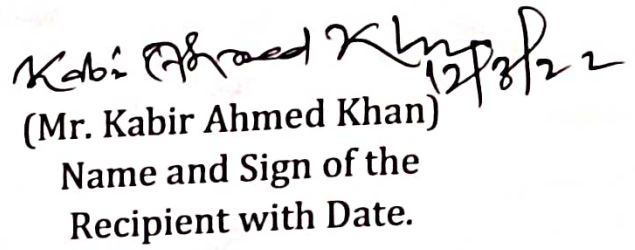 Kabir Ahmed Khan 12/3/22
(Mr. Kabir Ahmed Khan)
Name and Sign of the
Recipient with Date.